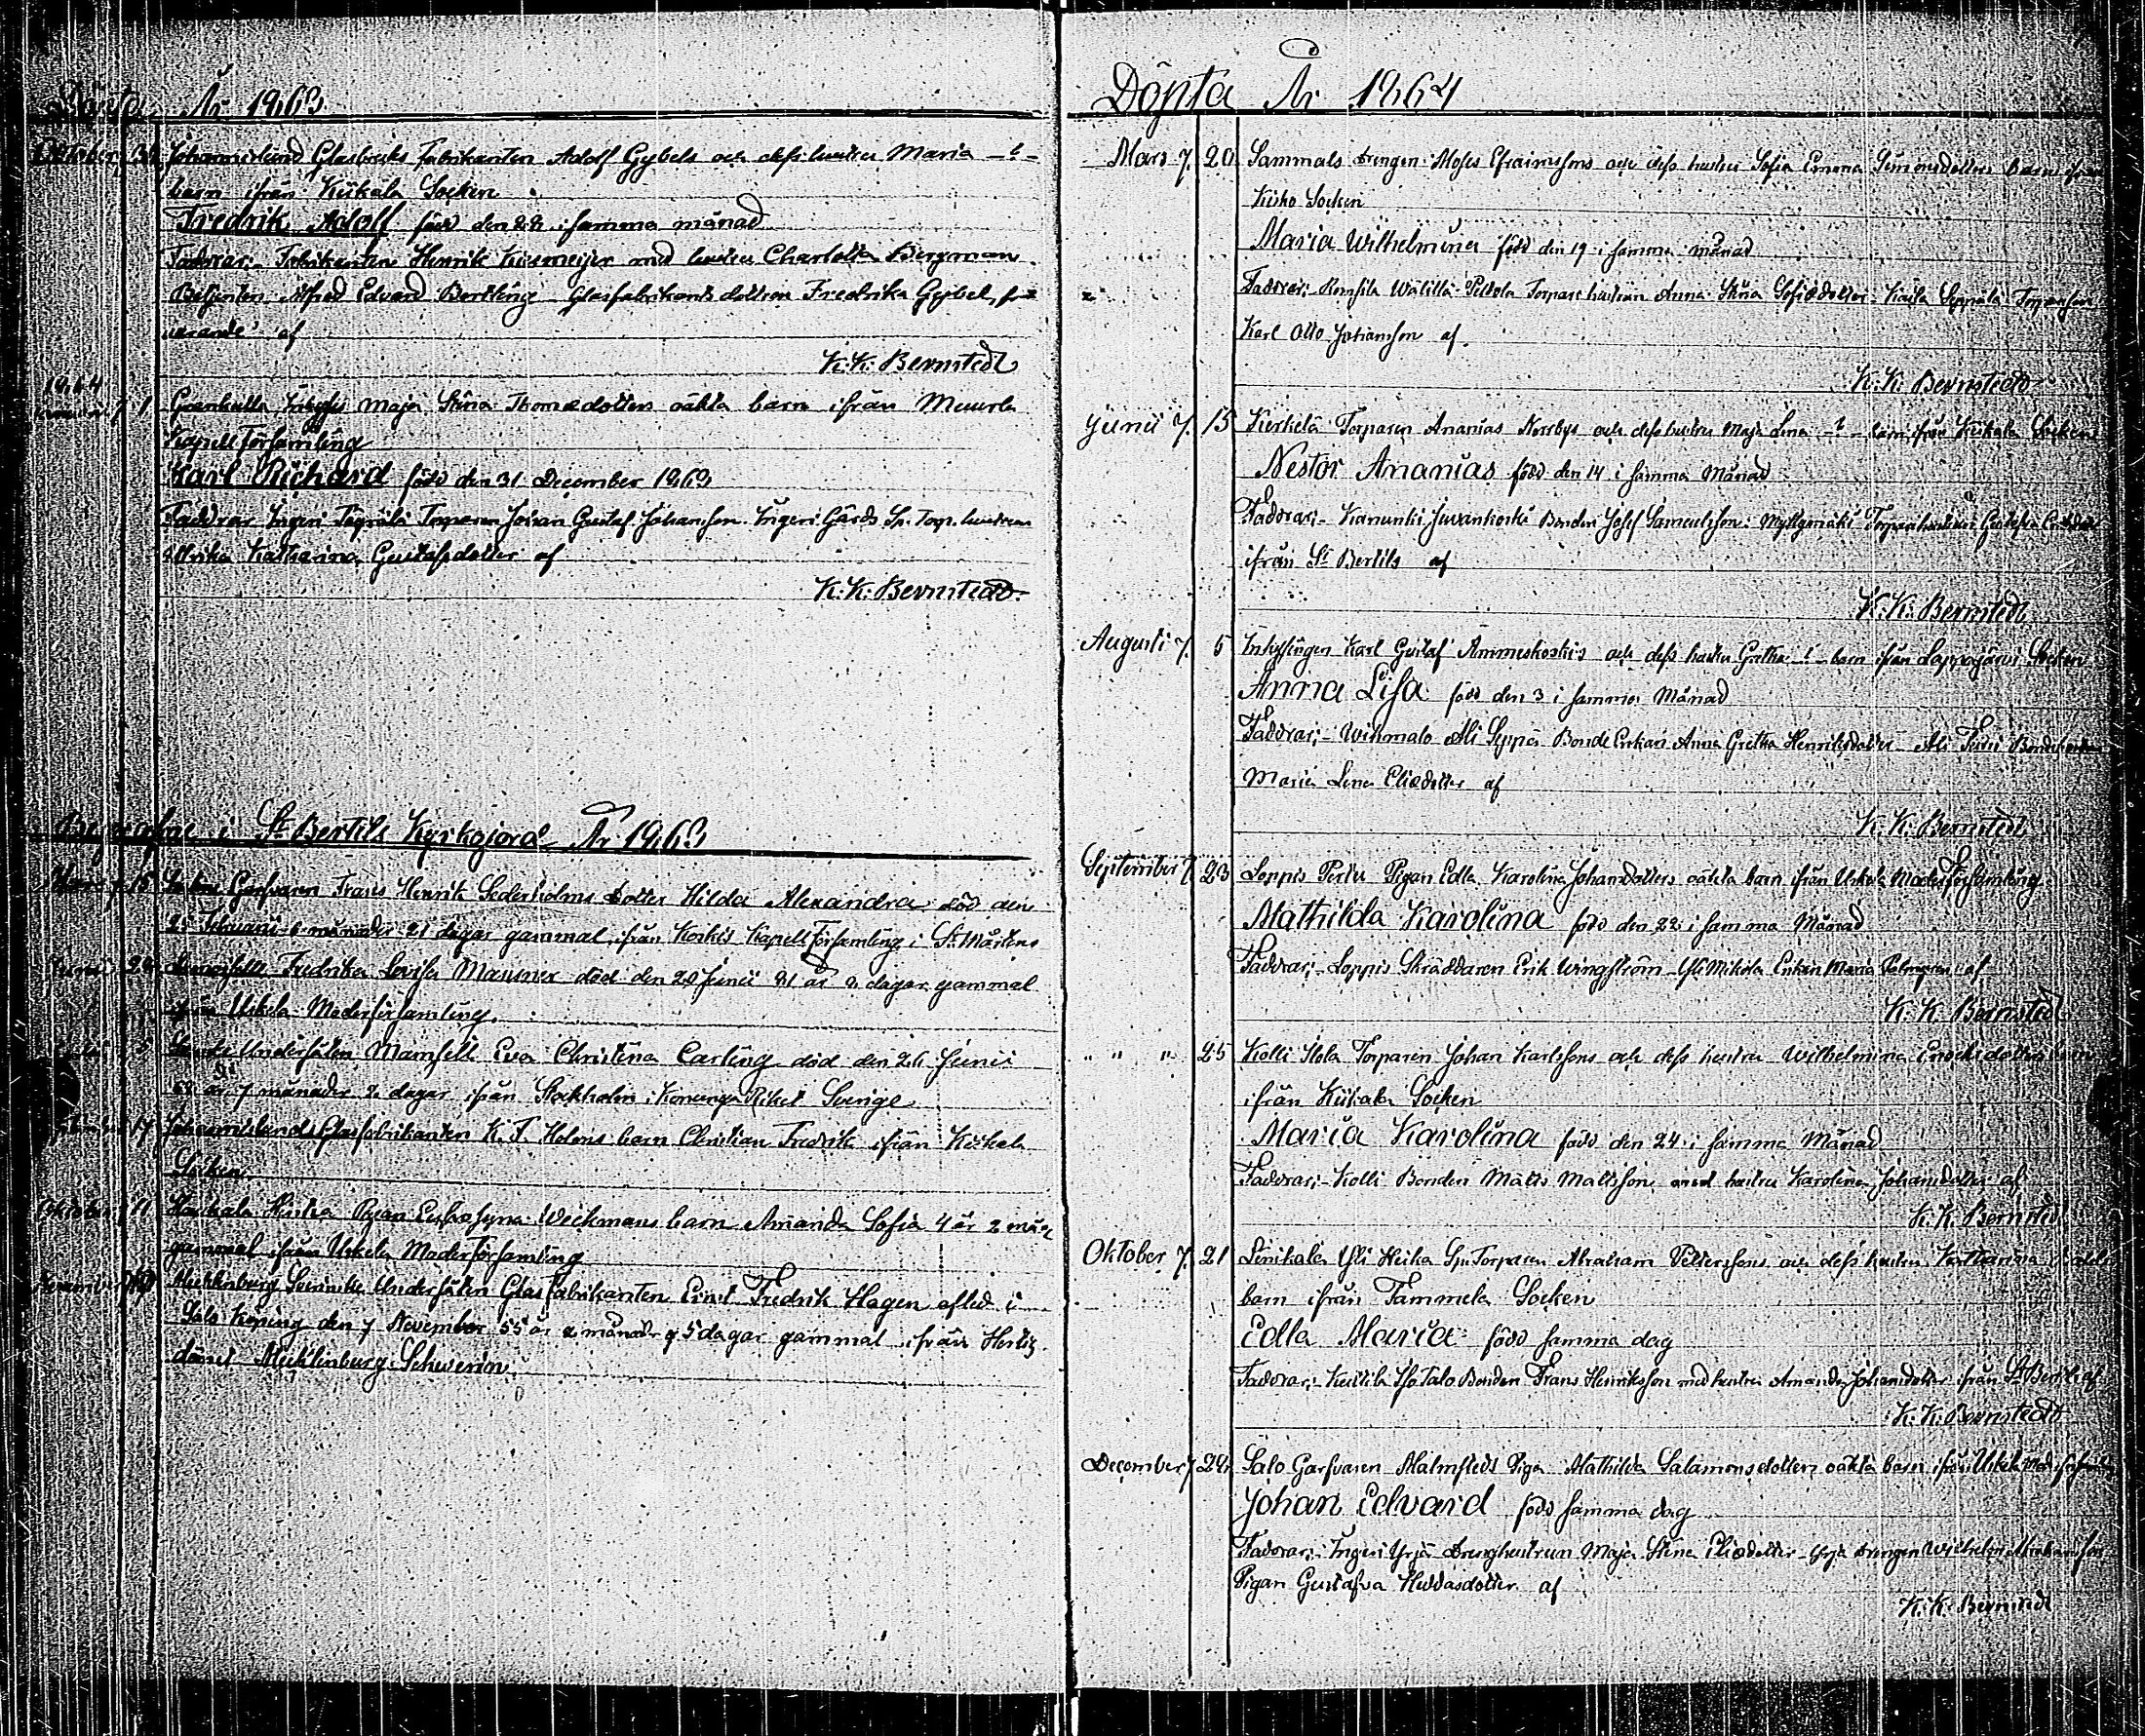 Döpta År 1863
Oktober 7. 31 Johannislund Glasbruks Fabrikanten Adolf Gybels och dess hustru Maria -?-
barn ifrån Kiikala Socken
Fredrik Adolf född den 28 i samma månad
Faddrar:- Fabrikanten Henrik med hustru Charlotta Bergman
Betjenten Alfred Edvard Glasfabrikants dottren Fredrika Gybel,
af
K. K. Bernstedt
1864
7. 1 Inhyses Maja Stina Thomædotters oäkta barn ifrån Muurla
Kapell Församling
Karl Richard född den 31 December 1863
Faddrar Ingeri Torparen Johan Gustaf Johansson. Ingeri Gårds Sp. Torp. hustrun
Ulrika Katharina Gustafsdotter af
K. K. Bernstedt
Begrafne i St Bertils Kyrkogård År 1863
Mars 7. 15 Garfvaren Frans Henrik Sederholms Dotter Hilda Alexandra död den
25 Februari 6 månader 21 dagar gammal, ifrån Koskis Kapell Församling i St Mårtens
Junii Fredrika Lovisa Manner död den 20 Junii 21 år 2 dagar gammal
ifrån Uskela Moderförsamling.
5 Undersåten Mamsell Eva Christina Carling död den 26 Junii
år 7 månader 2 dagar ifrån Stockholm i Konunga Riket Sverige
17 Johannislunds Glasfabrikanten K. F. barn Christian Fredrik ifrån Kiikala
Socken
Oktober 7. 11 Pigan Weckmans barn Amanda Sofia 4 år 2 mån
gammal ifrån Uskela Moderförsamling
November Mecklenburg Undersåten Glasfabrikanten Ernst Fredrik Hagen afled i
Salo Köping den 7 November 55 år 2 månader 5 dagar gammal ifrån Hertig-
dömet Mecklenburg-Schwerin.
Döpta År 1864
Mars 7. 20 Sammals Drengen Moses Efraimssons och dess hustru Sofia Emma Simonsdotters Barn ifrån
Kisko Socken
Maria Wilhelmina född den 19 i samma månad
Faddrar:- Wälillä Peltola Torpare hustrun Anna Stina Sefiædotter - Seppälä Torparson
Karl Otto Johansson af.
K. K. Bernstedt
Junii 7. 15 Kerkelä Torparen Ananias Norrbys och dess hustru Maja Lena -?- barn ifrån Kiikala Socken
Nestor Ananias född den 14 i samma Månad
Faddrar:- Juvankoski Bonden Josef Samuelsson. Torparehustrun
ifrån St Bertils af
K. K. Bernstedt
Augusti 7. 5 Inhysingen Karl Gustaf Ammeskoskis och dess hustru Gretha -?- barn ifrån Lappajärvi Socken
Anna Lisa född den 3 i samma Månad
Faddrar:- Wihmalo Ali Seppä Bonde Enkan Anna Gretha Henriksdotter - Ali
Maria Lena Eliædotter af
K. K. Bernstedt
September 7. 23 Loppis Perttu Pigan Edla Karolina Johansdotters oäkta barn ifrån Uskela Moderförsamling
Mathilda Karolina född den 22 i samma Månad
Faddrar:- Loppis Skräddaren Erik Wingström - Yli Mikola Enkan Maria Palmgren af
K. K. Bernstedt
" " " 25 Kolli Torparen Johan Karlssons och dess hustru Wilhelmina Enochsdotters barn
ifrån Kiikala Socken
Maria Karolina född den 24 i samma Månad
Faddrar:- Kolli Bonden Matts Mattsson med hustru Karolina Johansdotter af
K. K. Bernstedt
Oktober 7. 21 Yli Heika Sp. Torparen Abraham Petterssons och dess hustru Katharina
barn ifrån Tammela Socken
Edla Maria född samma dag
Faddrar:- Iso Talo Bonden Frans Henriksson med hustru Amanda Johansdotter ifrån St Bertils af
K. K. Bernstedt
December 7. 28 Salo Garfvaren Malmstedts Piga Mathilda Salamonsdotters oäkta barn ifrån Uskela
Johan Edvard född samma dag
Faddrar:- Ingeri Yrjä Drenghustrun Maja Stina Eliædotter - Yrjä Drengen Wilhelm Abrahamsson
Pigan Gustafva Hurdasdotter af
K. K. Bernstedt